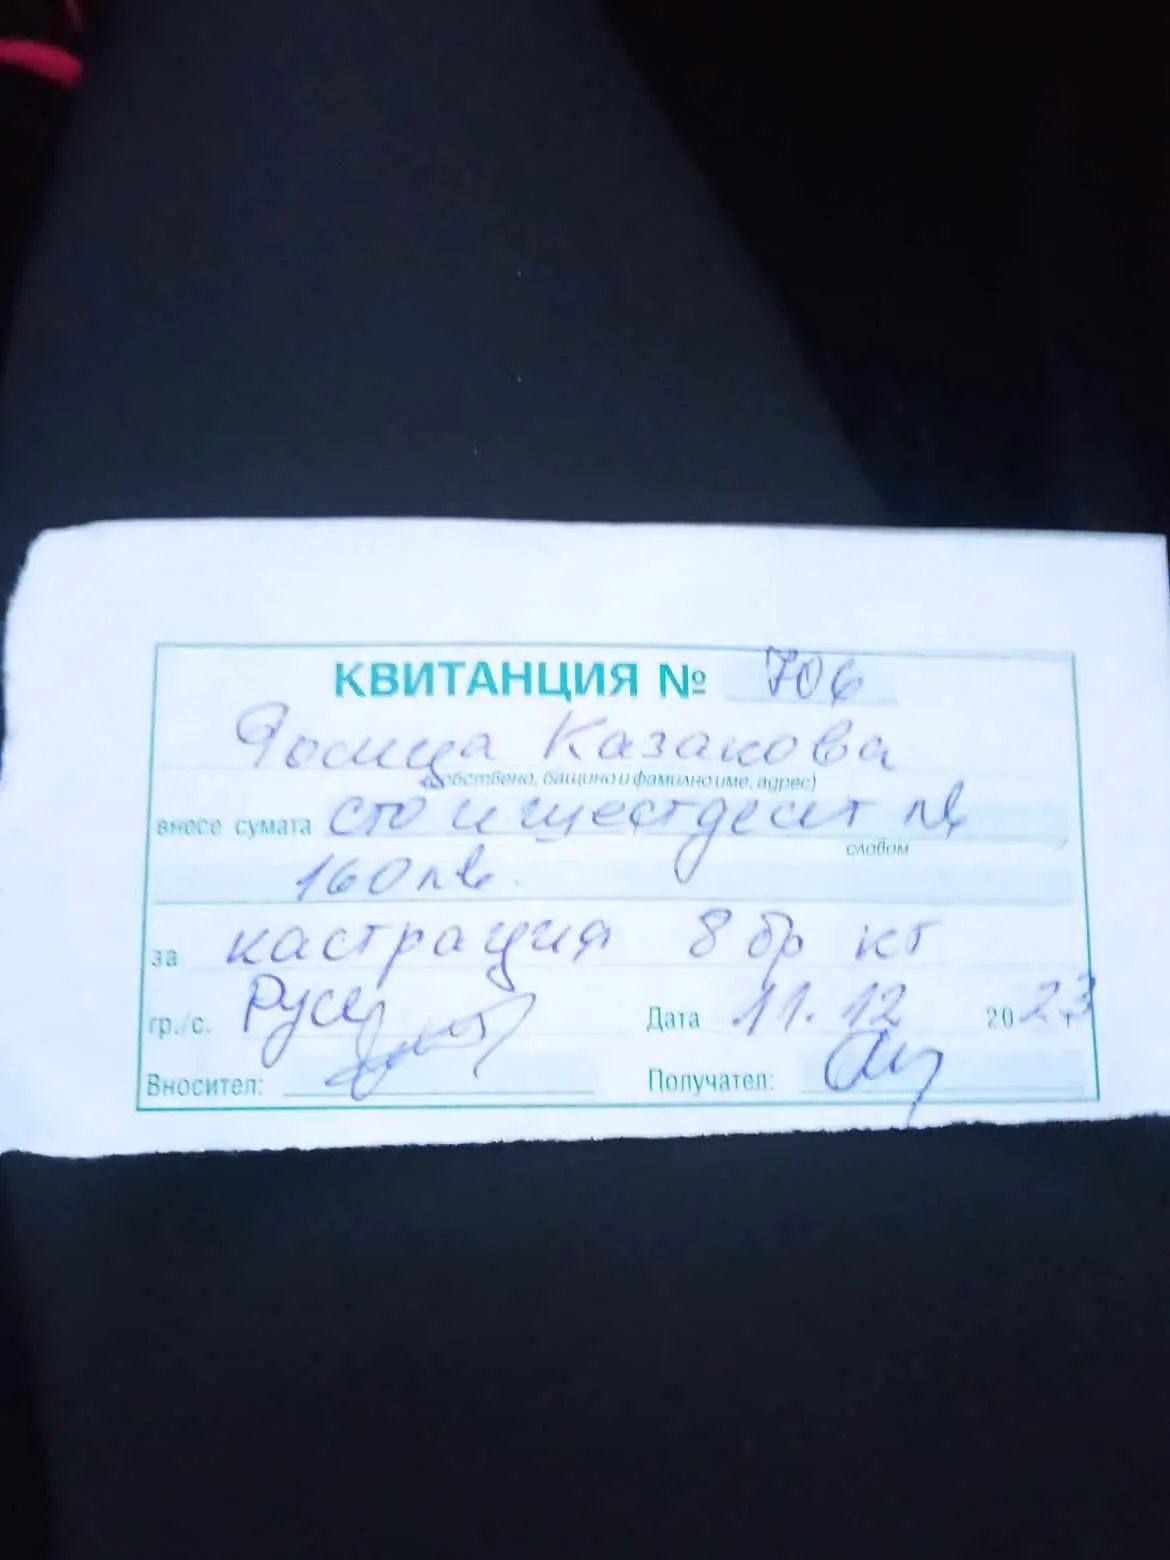 КВИТАНЦИЯ № 706
Росица Казакова
(собствено, бащино и фамилно име, адрес)
внесе сумата сто и шестдесет лв
словом
160 лв.
за кастрация 8 бр кт
гр./с. Русе Дата 11.12 2023 г
Вносител: Получател: